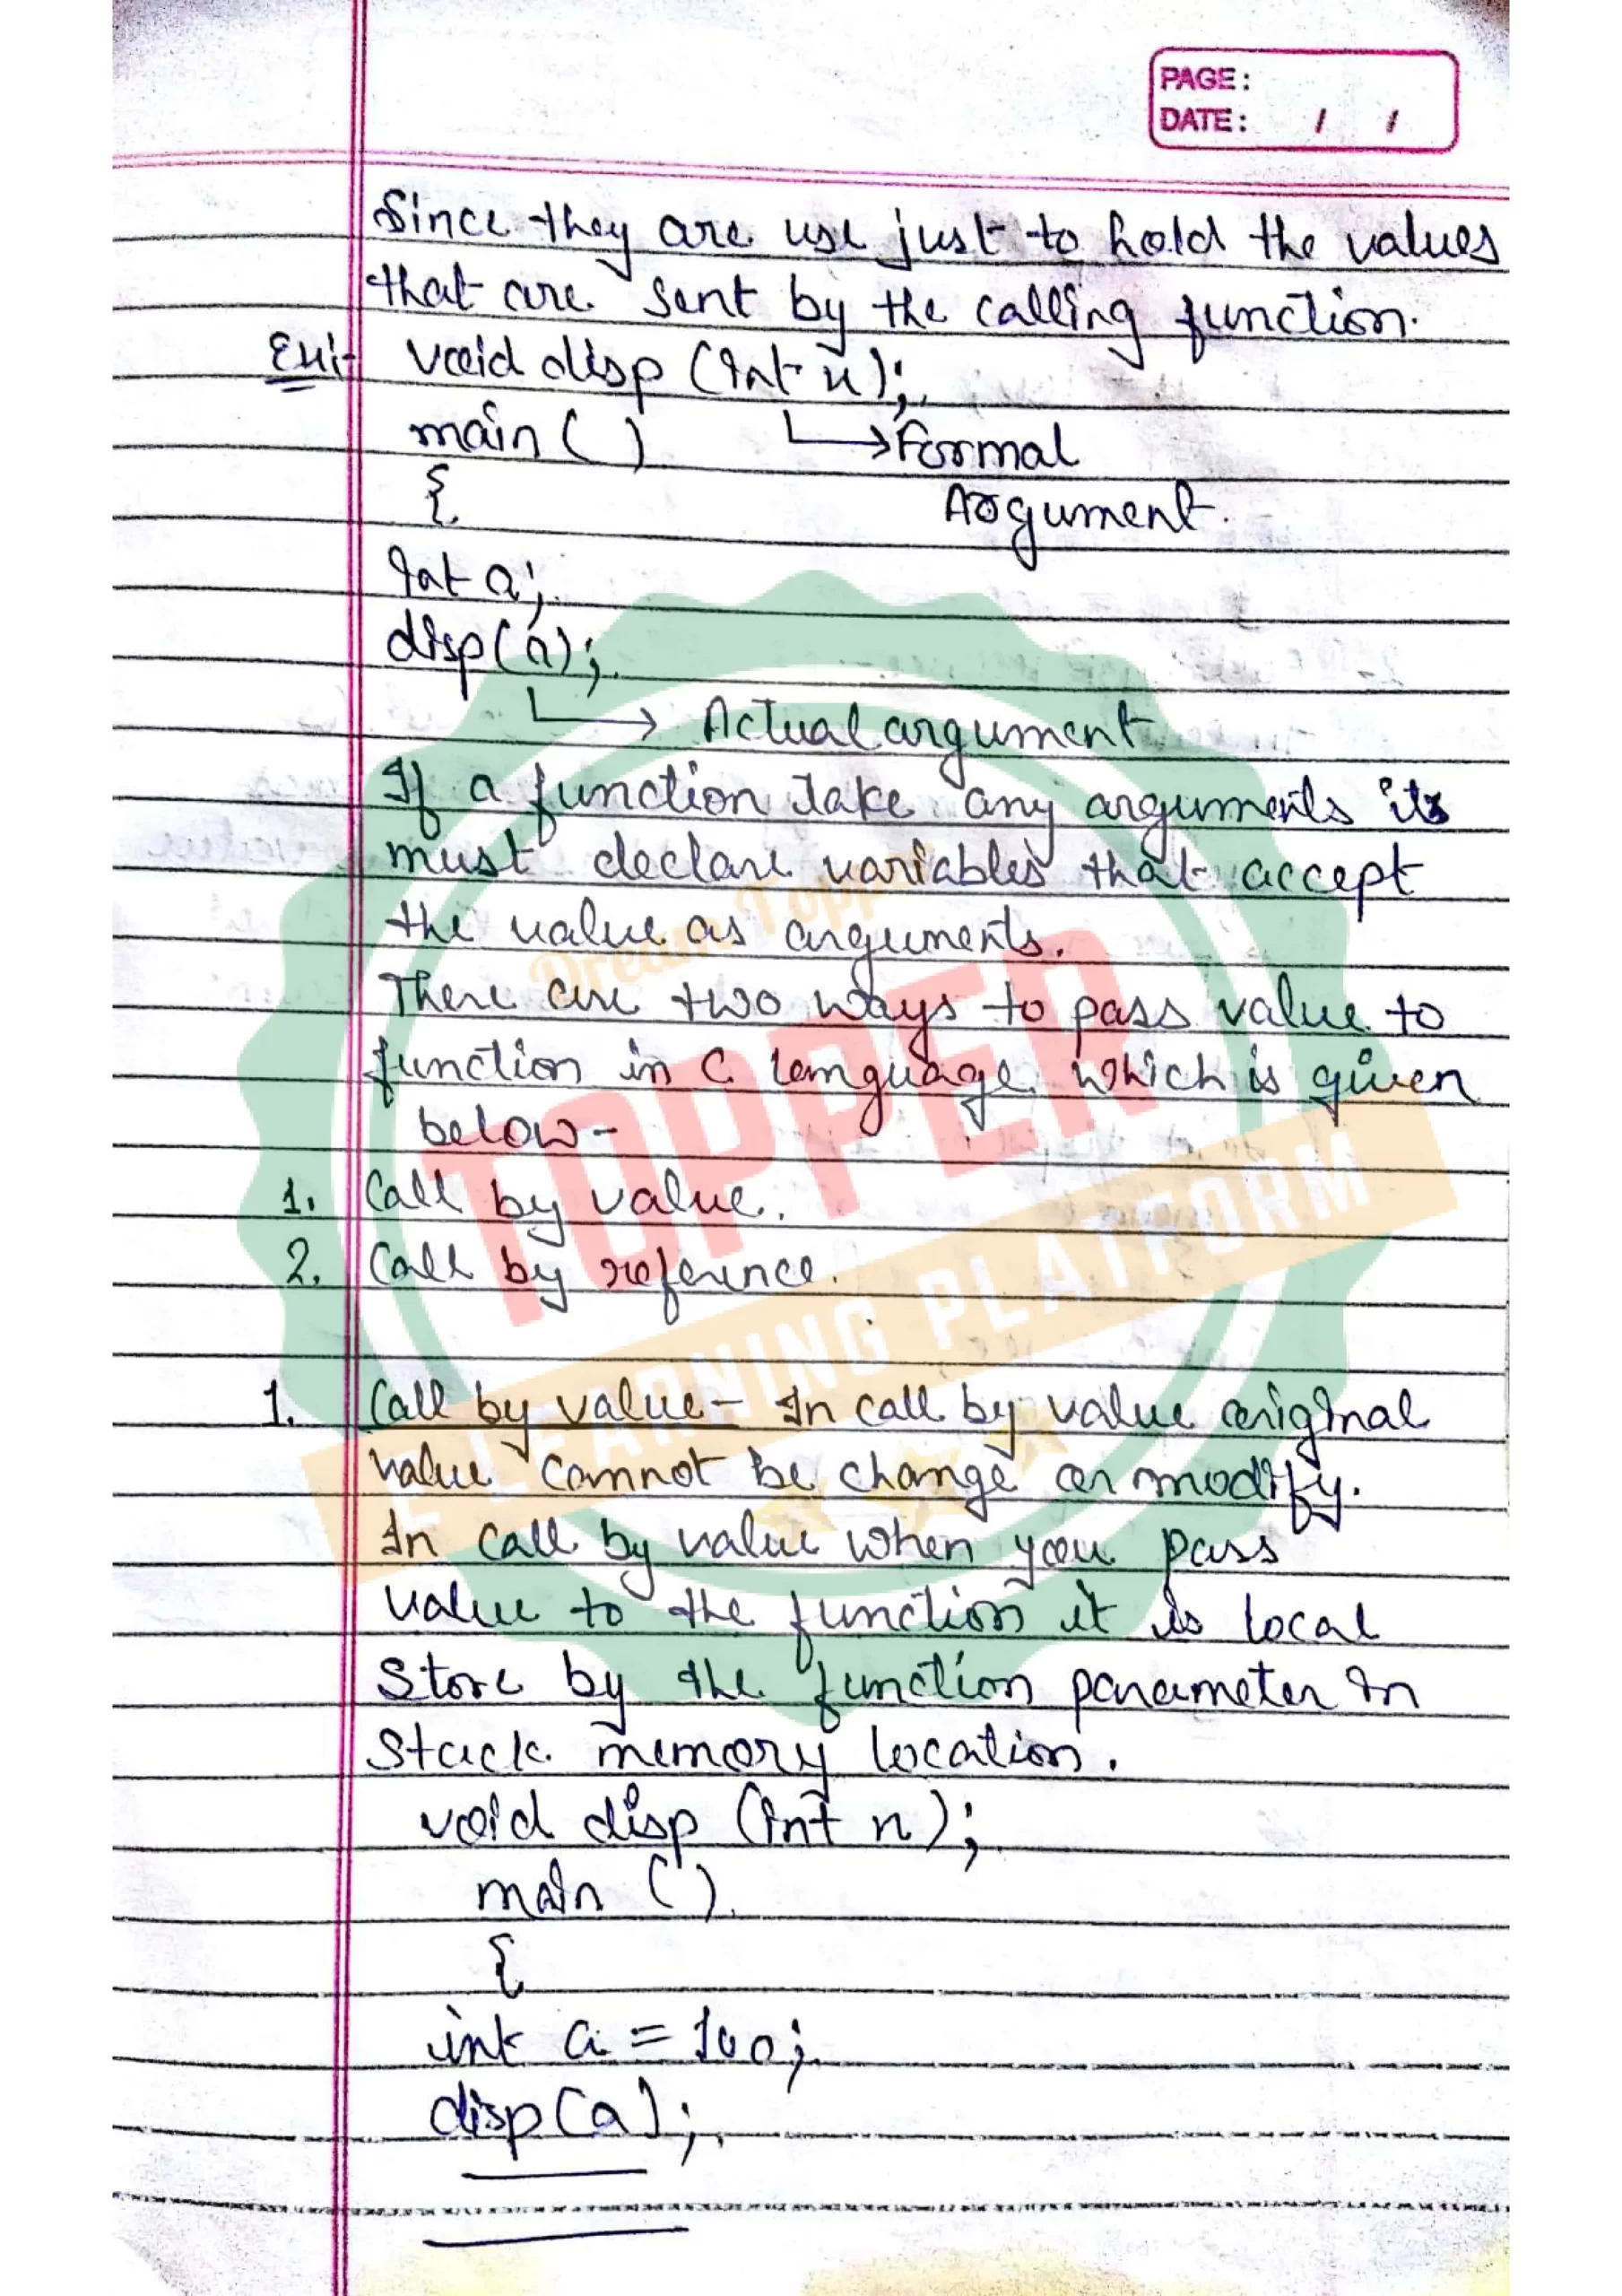 PAGE:
DATE: / /
Since they are use just to hold the values
that are sent by the calling function.
Ex:- void disp (int x);
main ( ) → Formal
{ Argument.
int a;
disp(a);
→ Actual argument
If a function take any arguments its
must declare variables that accept
the value as arguments.
There are two ways to pass value to
function in C language which is given
below-
1. Call by value.
2. Call by reference.
1. Call by value - In call by value original
value cannot be change or modify.
In call by value when you pass
value to the function it is local
store by the function parameter in
stack memory location.
void disp (int n);
main ( )
{
int a = 100;
disp(a);
Dream Topper
TOPPER
E LEARNING PLATFORM